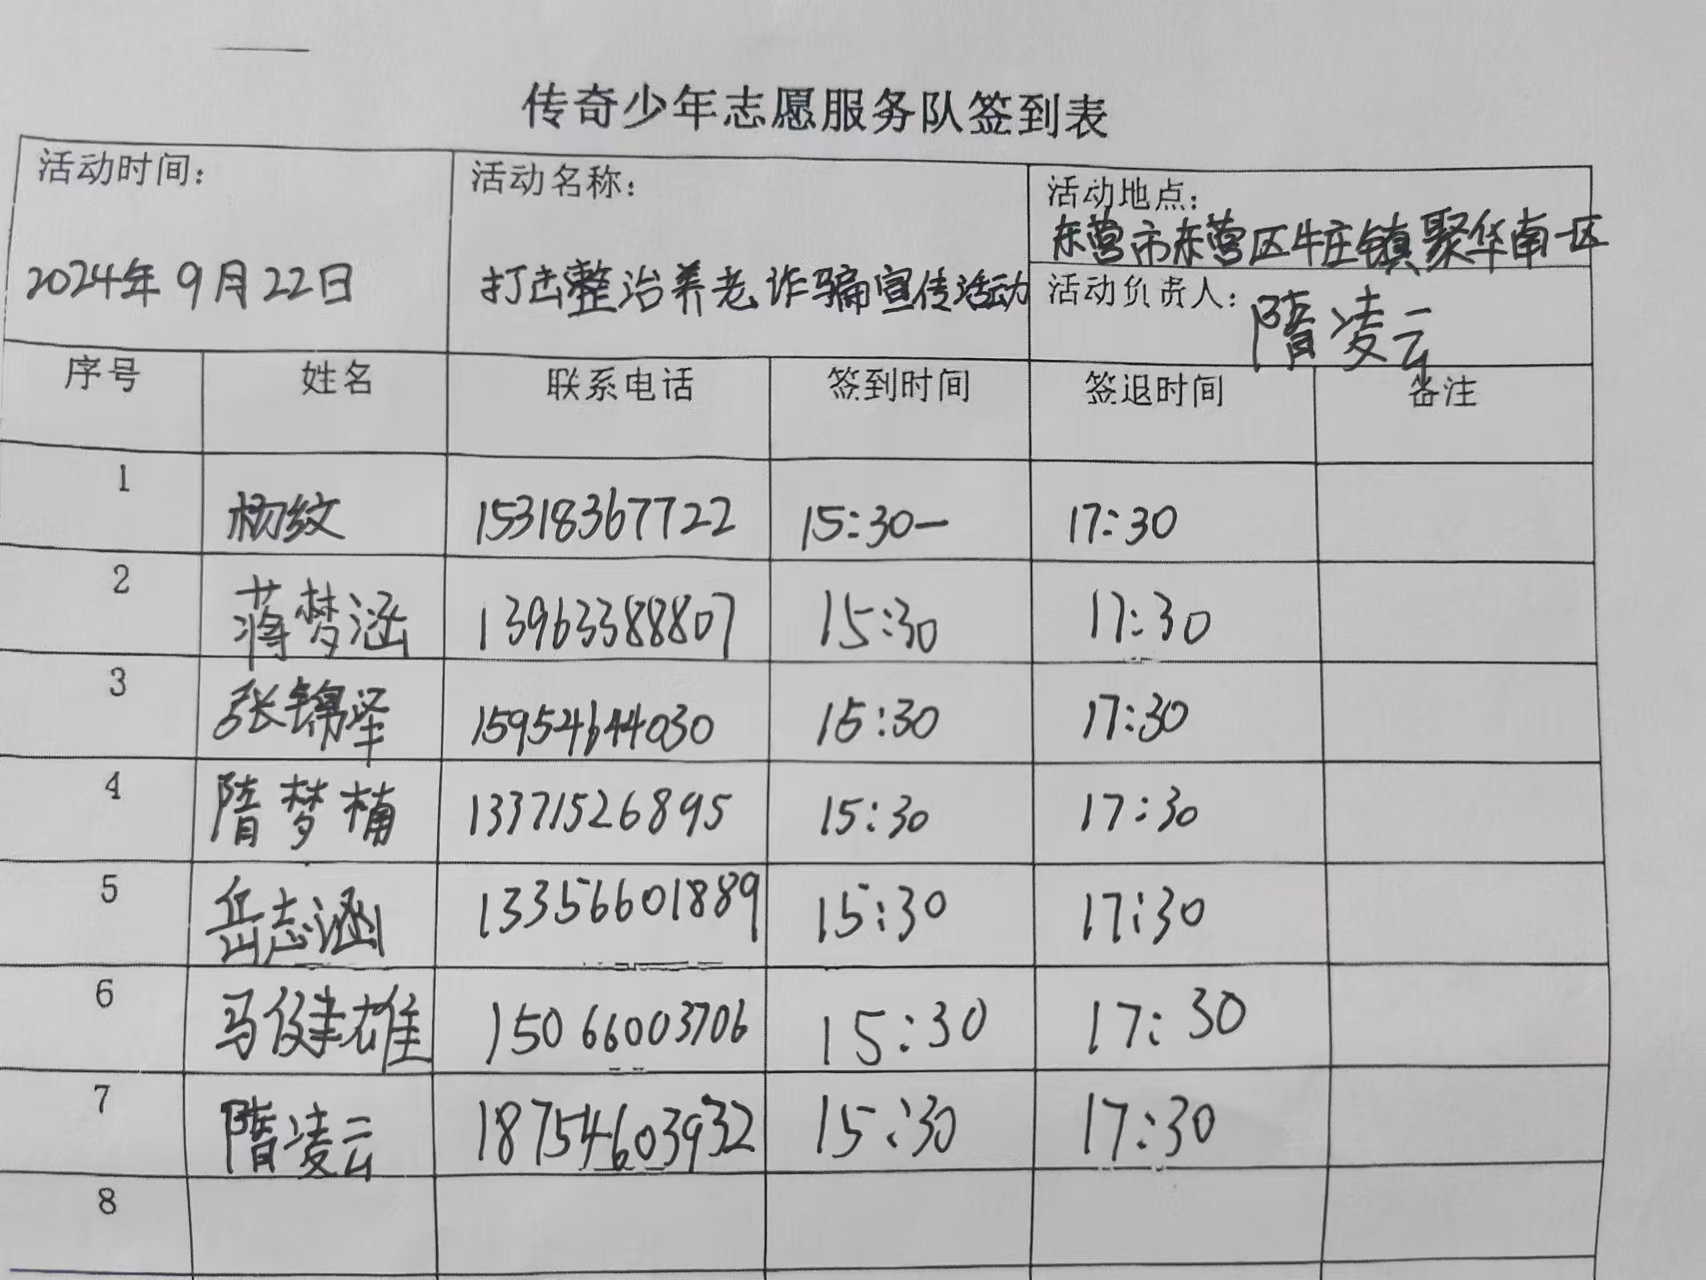 传奇少年志愿服务队签到表
活动时间： 活动名称： 活动地点：
东营市东营区牛庄镇聚华南区
2024年9月22日 打击整治养老诈骗宣传活动 活动负责人：隋凌云
序号 姓名 联系电话 签到时间 签退时间 备注
1 杨纹 15318367722 15:30— 17:30
2 蒋梦涵 13963388807 15:30 17:30
3 张锦泽 15954644030 15:30 17:30
4 隋梦楠 13371526895 15:30 17:30
5 岳志涵 13356601889 15:30 17:30
6 马健雄 15066003706 15:30 17:30
7 隋凌云 18754603932 15:30 17:30
8